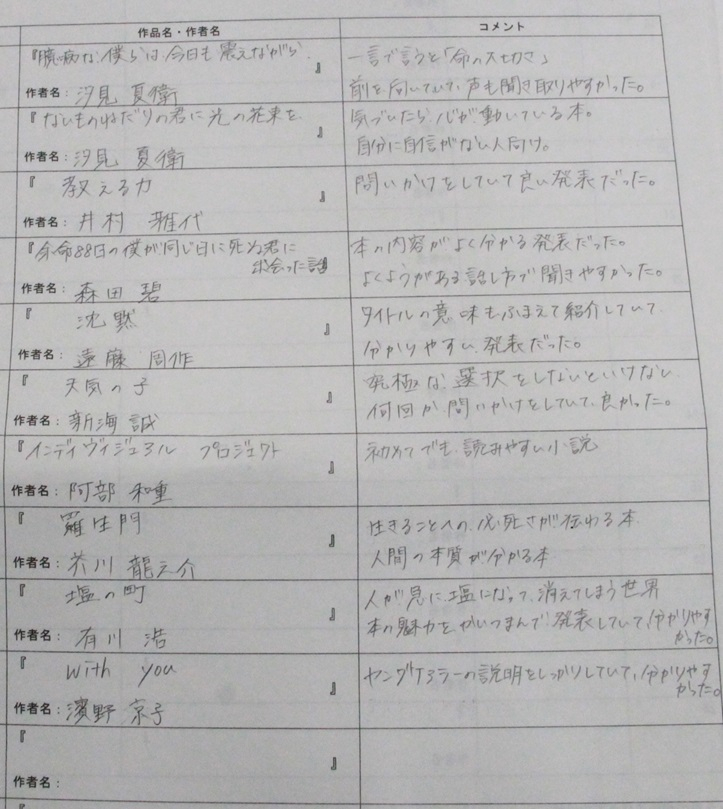 作品名・作者名
コメント
『臆病な僕らは今日も震えながら
』
作者名：汐見 夏衛
一言で言うと「命の大切さ」
前を向いていて、声も聞き取りやすかった。
『ないものねだりの君に光の花束を
』
作者名：汐見 夏衛
気づいたら心が動いている本。
自分に自信がない人向け。
『 教える力 』
作者名：井村 雅代
問いかけをしていて良い発表だった。
『余命88日の僕が同じ日に死ぬ君に
出会った話』
作者名：森田 碧
本の内容がよく分かる発表だった。
よくようがある話し方で聞きやすかった。
『 沈黙 』
作者名：遠藤 周作
タイトルの意味もふまえて紹介していて、
分かりやすい発表だった。
『 天気の子 』
作者名：新海 誠
究極な選択をしないといけない
何回か問いかけをしていて良かった。
『インディヴィジュアル プロジェクト
』
作者名：阿部 和重
初めてでも読みやすい小説
『 羅生門 』
作者名：芥川 龍之介
生きることへの必死さが伝わる本
人間の本質が分かる本
『 塩の町 』
作者名：有川 浩
人が急に塩になって、消えてしまう世界
本の魅力をかいつまんで発表していて、分かりやす
かった。
『 with you 』
作者名：濱野 京子
ヤングケアラーの説明をしっかりしていて、分かりやす
かった。
『
』
作者名：
『